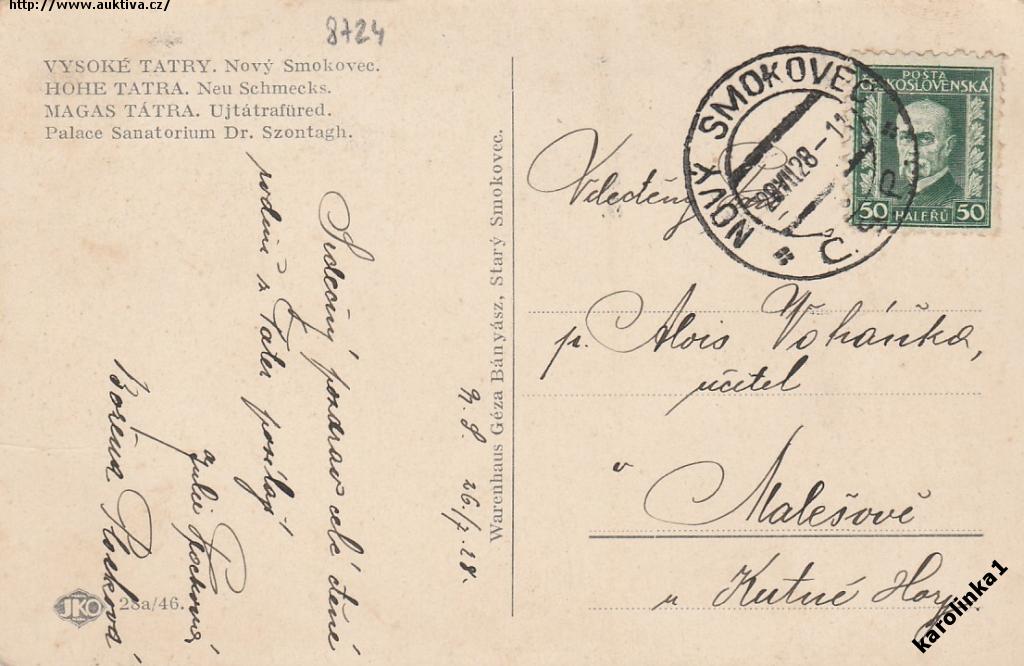 http://www.auktiva.cz/
8724
VYSOKÉ TATRY. Nový Smokovec.
HOHE TATRA. Neu Schmecks.
MAGAS TÁTRA. Ujtátrafüred.
Palace Sanatorium Dr. Szontagh.
Srdečný pozdrav celé ctěné
rodině z Tater posílají
Julie
Božena
N. S. 26/7. 28.
Warenhaus Géza Bányász, Starý Smokovec.
JKO 28a/46.
NOVÝ SMOKOVEC
28.VII.28-11
POŠTA
ČESKOSLOVENSKÁ
50 HALÉŘŮ 50
Velectěný
p. Alois Voháňka,
učitel
v Malešově
u Kutné Hory
karolinka1